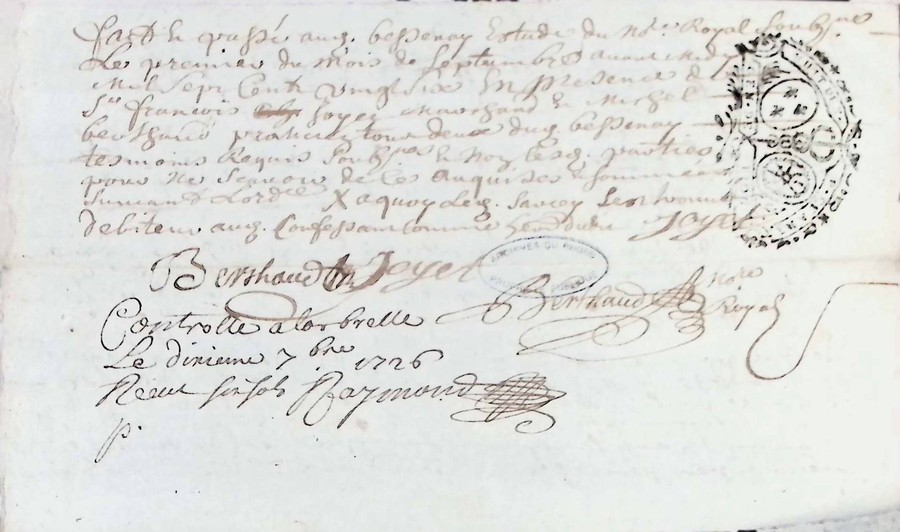 fait & passé aud. bessenay Estude du No.re Royal Soubz.né
Le premier du mois de Septembre avant Midy
Mil Sept Cent vingt six En presence de
Sr. francois Joyet Marchand & Michel
berthaud praticien tous deux dud. bessenay
tesmoins Requis Soubz.nés & Non lesd. parties
pour ne scavoir de ce Enquises & Sommées
suivant Lord.ce X a quoy led. Sarcey
debiteur aud. Confessant comme heritier Joyet
Berthaud Joyet
Berthaud no.re Royal
ARCHIVES DU RHONE
Controllé a larbrelle
Le dixieme 7bre 1726
Receu six sols Raymond
p.